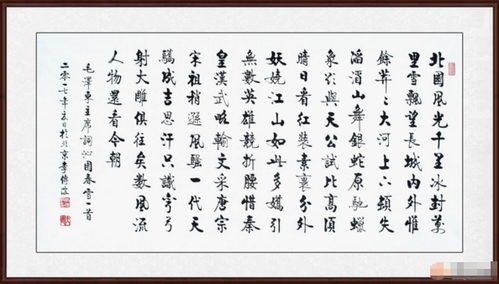 北國風光千里冰封萬
里雪飄望長城內外惟
餘莽〻大河上下頓失
滔滔山舞銀蛇原馳蠟
象欲與天公試比高須
晴日看紅裝素裹分外
妖嬈江山如此多嬌引
無數英雄競折腰惜秦
皇漢武略輸文采唐宗
宋祖稍遜風騷一代天
驕成吉思汗只識彎弓
射大雕俱往矣數風流
人物還看今朝
毛澤東主席詞沁園春雪一首
二零一七年夏日於北京李傳波